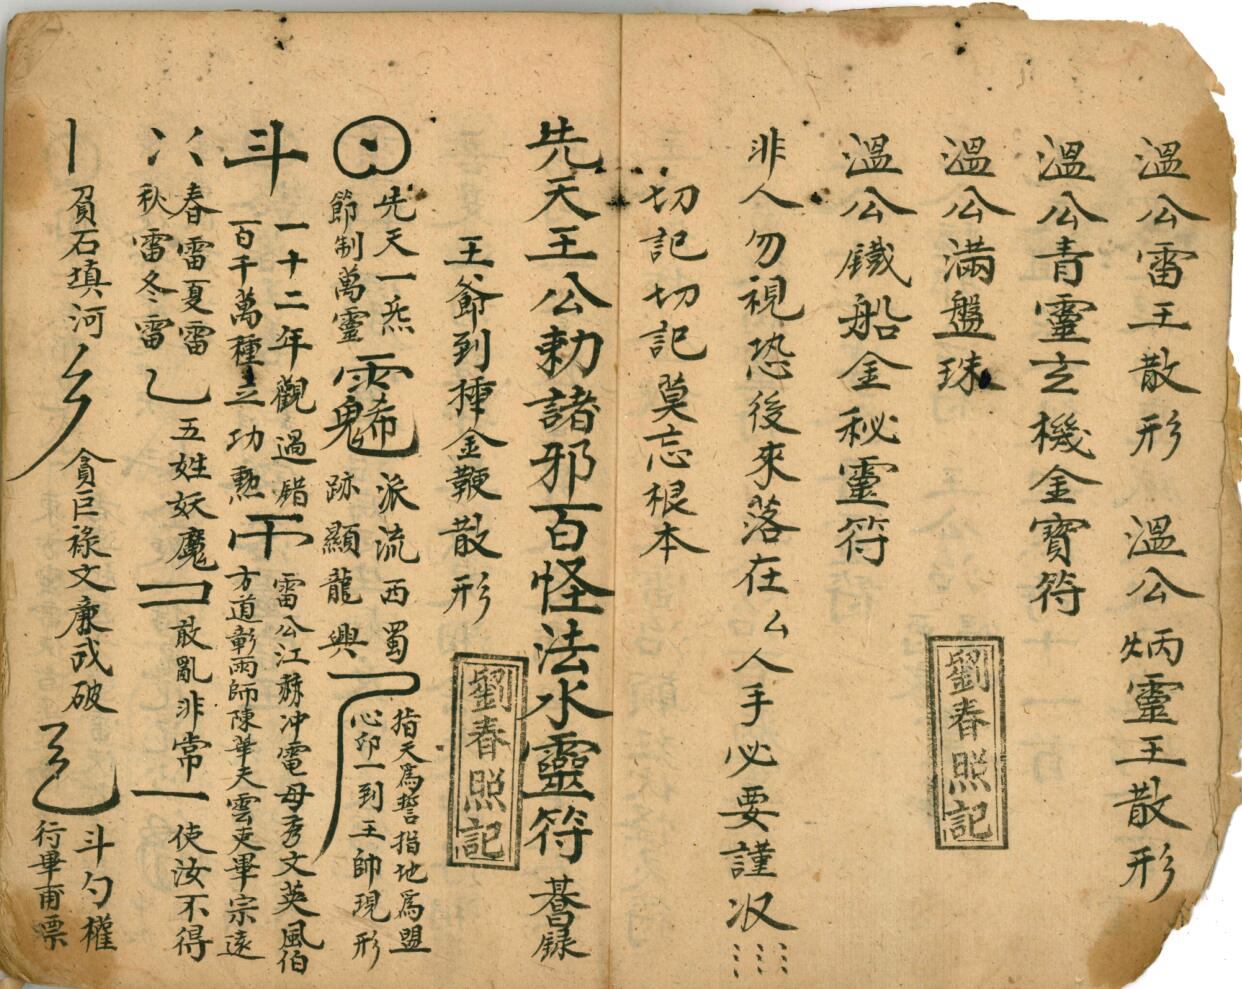 溫公雷王散形 溫公炳靈王散形
溫公青靈玄機金寶符
溫公滿盤珠
劉春照記
溫公鐵船金秘靈符
非人勿視恐後來落在厶人手必要謹収
切記切記莫忘根本
先天王公勅諸邪百怪法水靈符 謄錄
王爺到 金鞭散形
劉春照記
先天一炁
節制萬靈
派流西蜀
跡顯龍興
指天爲誓指地爲盟
心卯一到王帥現形
斗
一十二年觀過錯
百千萬種立功勲
干
雷公江赫冲電母秀文英風伯
方道彰雨師陳華夫雲吏畢宗遠
春雷夏雷
秋雷冬雷
五姓妖魔
敢亂非常
一
使汝不得
丨
負石填河
貪巨祿文廉武破
斗勺權
行畢甫票